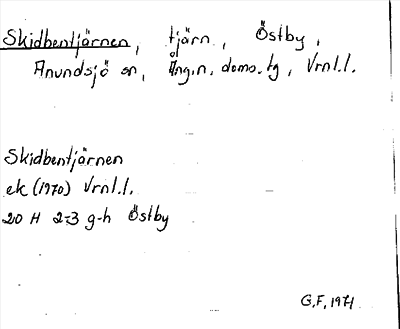 Skidbentjärnen, tjärn, Östby,
Anundsjö sn, Ång.n. doms.tg, Vrnl.l.
Skidbentjärnen
ek (1970) Vrnl.l.
20 H 2-3 g-h Östby
G.F, 1971